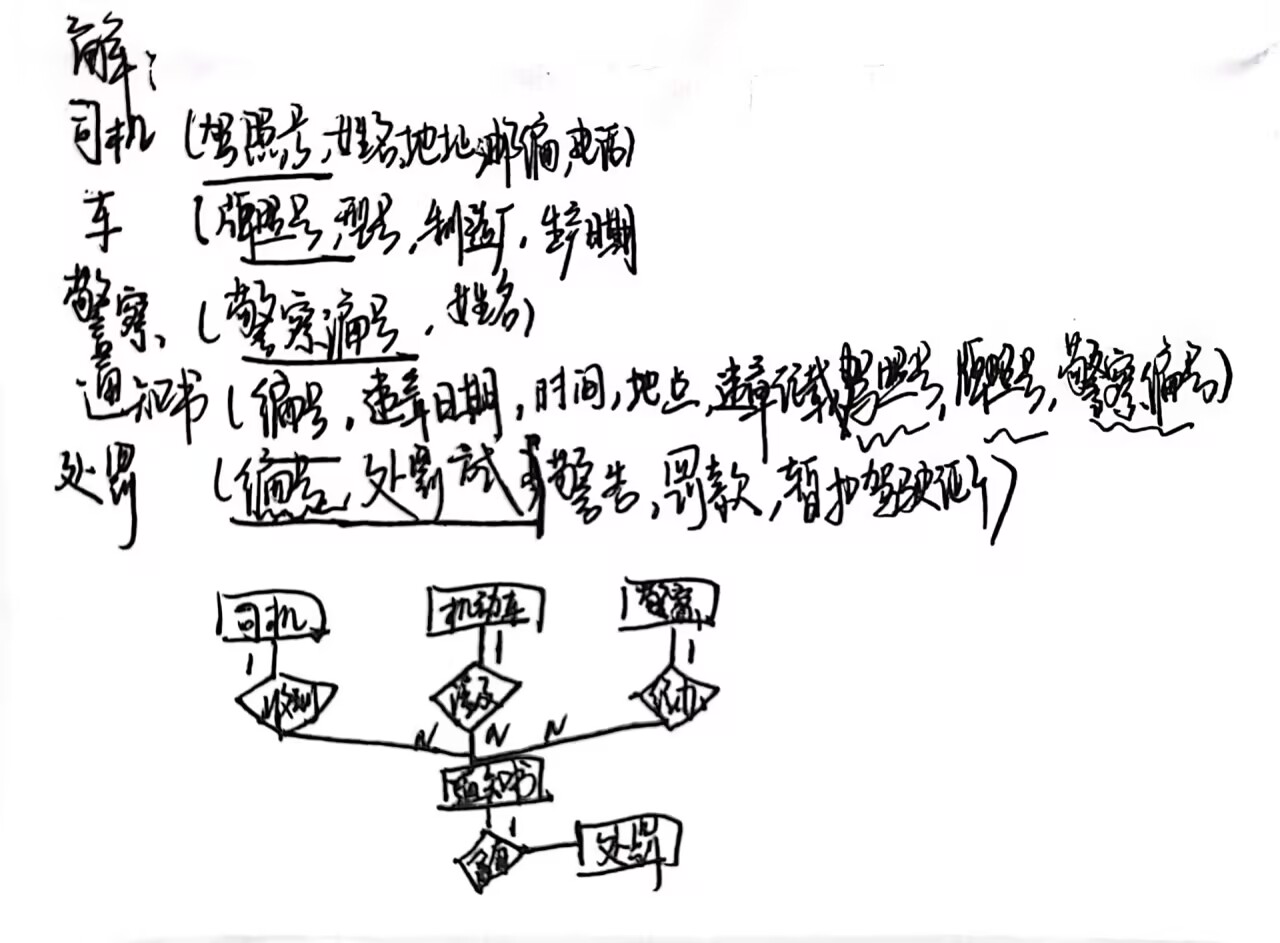 解:
司机 (驾照号,姓名,地址,邮编,电话)
车 (牌照号,型号,制造厂,生产日期
警察 (警察编号,姓名)
通知书 (编号,违章日期,时间,地点,违章记载,驾照号,牌照号,警察编号)
处罚 (编号,处罚方式 警告,罚款,暂扣驾驶证)
司机 机动车 警察
1 1 1
收到 涉及 经办
N N N
通知书
1
处罚